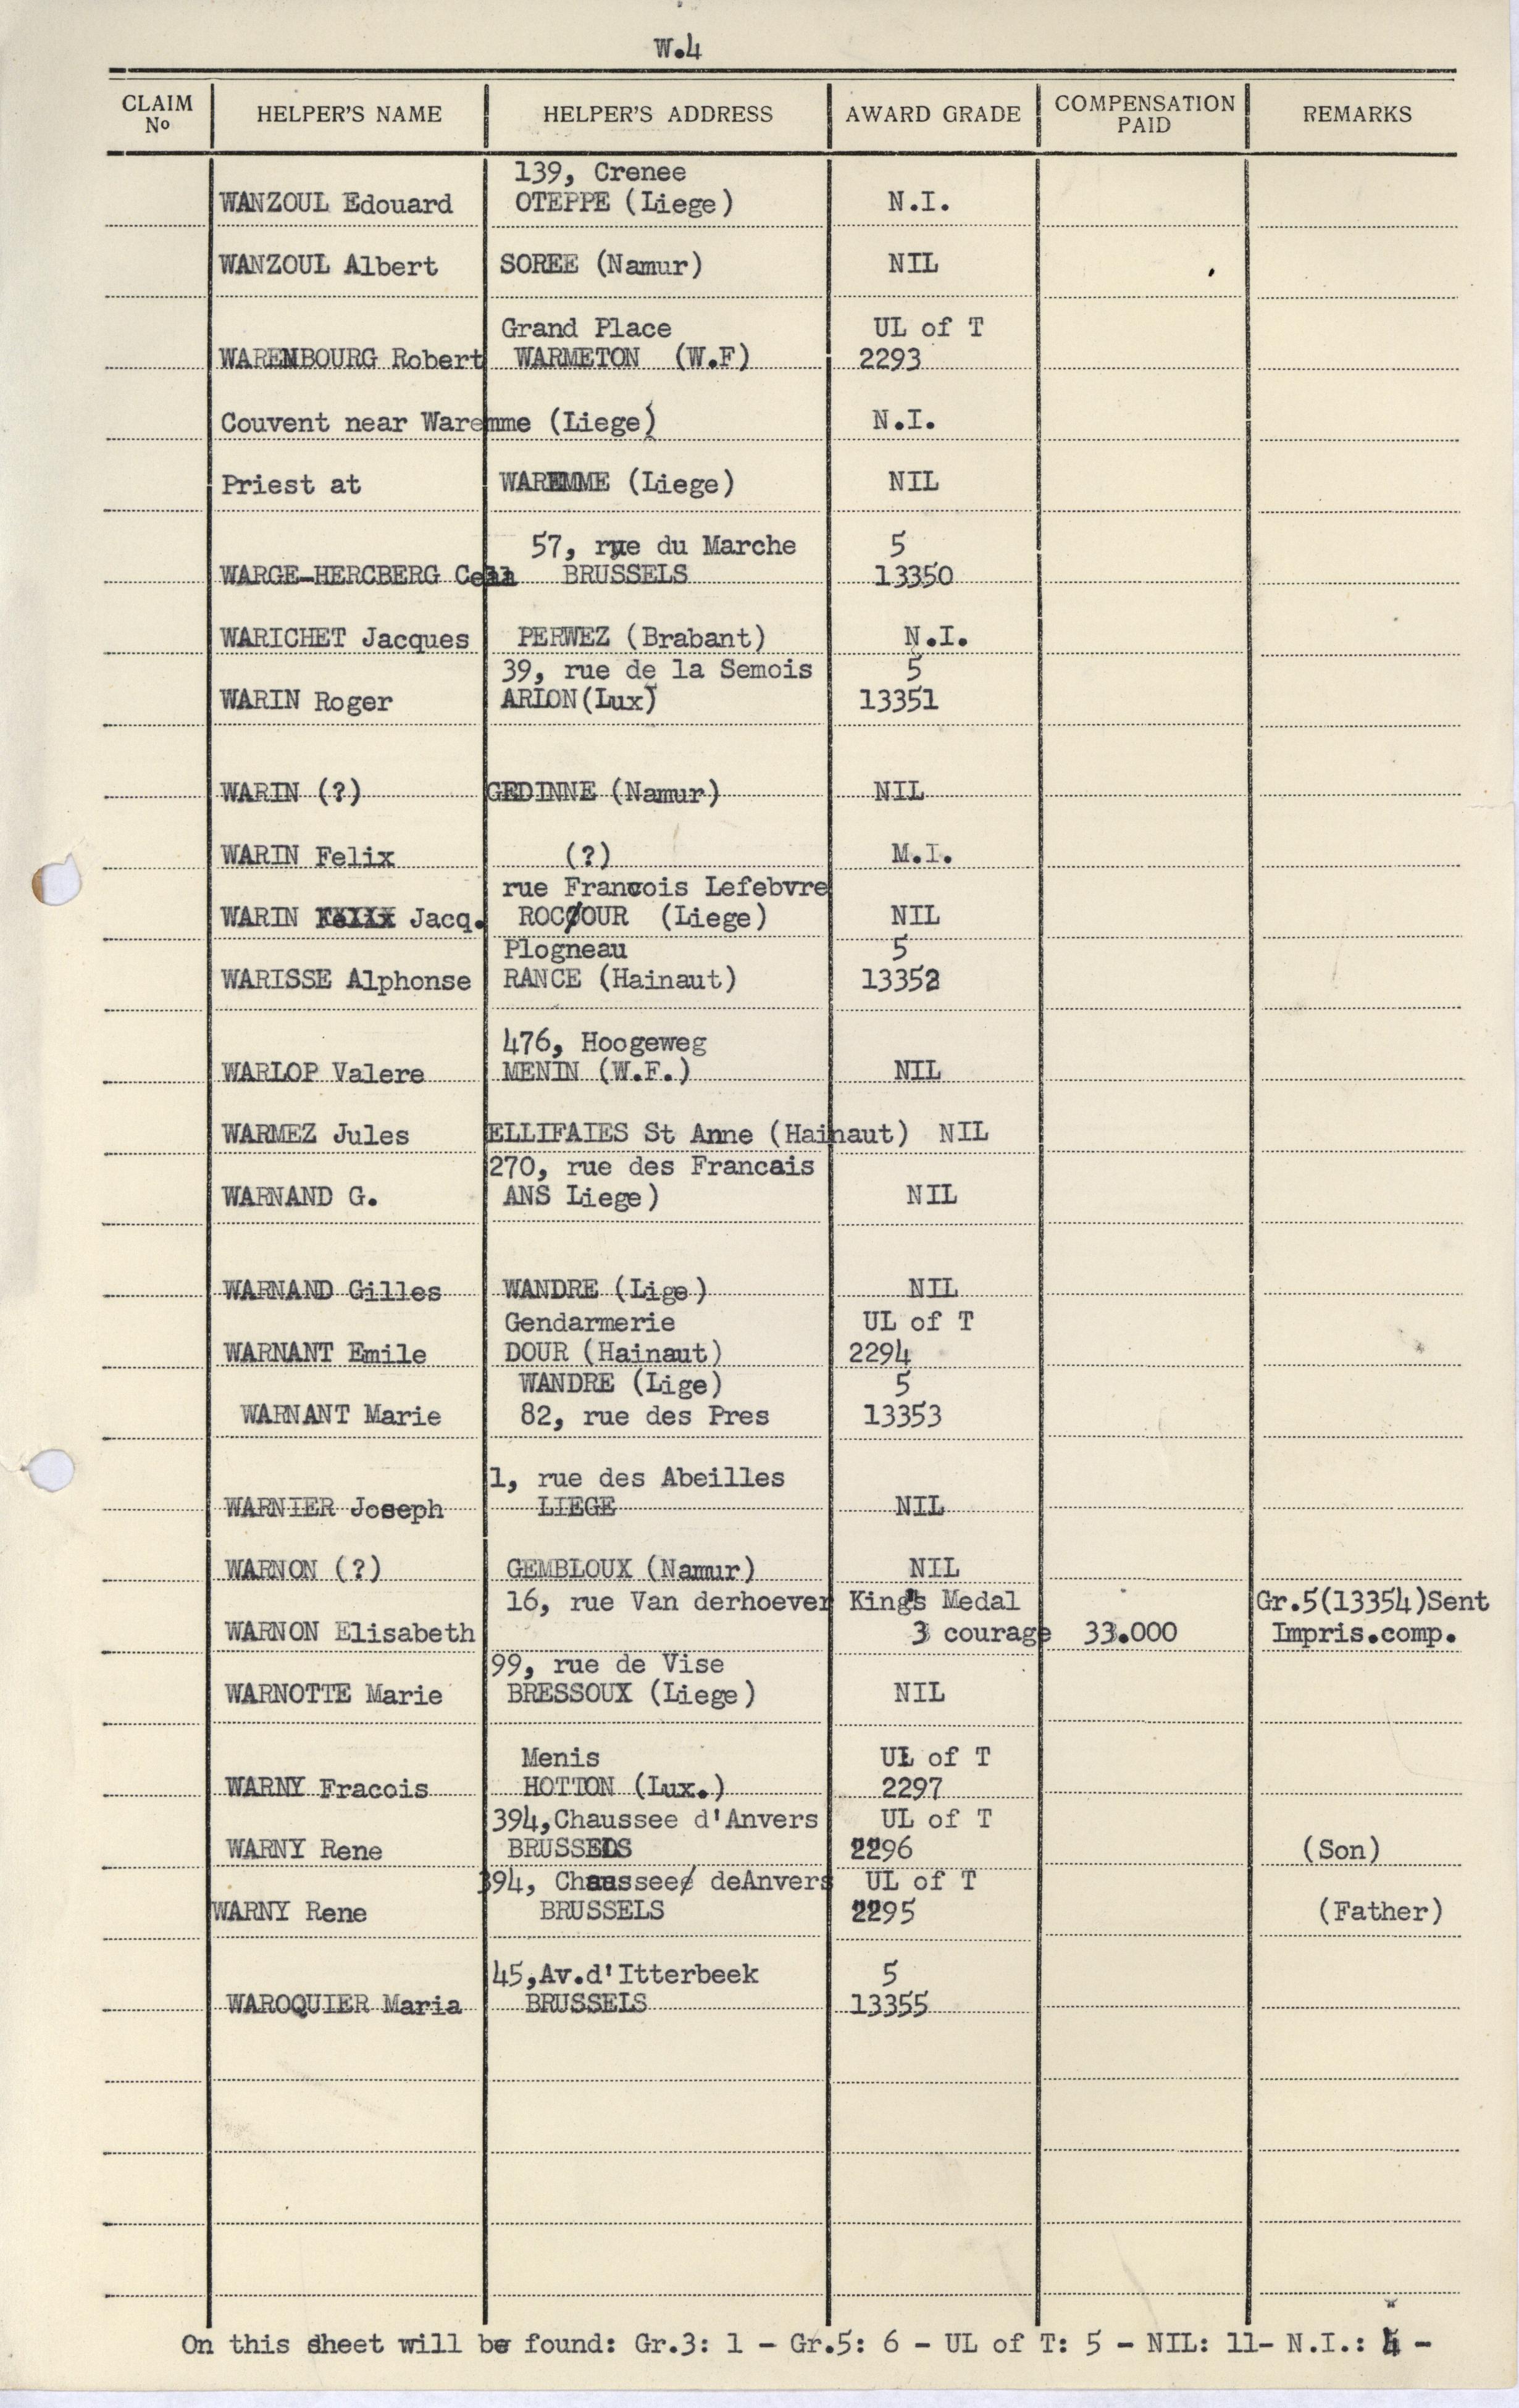 W.4
CLAIM No HELPER'S NAME HELPER'S ADDRESS AWARD GRADE COMPENSATION PAID REMARKS
139, Crenee
WANZOUL Edouard OTEPPE (Liege) N.I.
WANZOUL Albert SOREE (Namur) NIL
Grand Place UL of T
WAREMBOURG Robert WARMETON (W.F) 2293
Couvent near Waremme (Liege) N.I.
Priest at WAREMME (Liege) NIL
57, rue du Marche 5
WARGE-HERCBERG BRUSSELS 13350
WARICHET Jacques PERWEZ (Brabant) N.I.
39, rue de la Semois 5
WARIN Roger ARLON(Lux) 13351
WARIN (?) GEDINNE (Namur) NIL
WARIN Felix (?) M.I.
rue Francois Lefebvre
WARIN Felix Jacq. ROCOUR (Liege) NIL
Plogneau 5
WARISSE Alphonse RANCE (Hainaut) 13352
476, Hoogeweg
WARLOP Valere MENIN (W.F.) NIL
WARMEZ Jules ELLIFAIES St Anne (Hainaut) NIL
270, rue des Francais
WARNAND G. ANS Liege) NIL
WARNAND Gilles WANDRE (Lige) NIL
Gendarmerie UL of T
WARNANT Emile DOUR (Hainaut) 2294
WANDRE (Lige) 5
WARNANT Marie 82, rue des Pres 13353
1, rue des Abeilles
WARNIER Joseph LIEGE NIL
WARNON (?) GEMBLOUX (Namur) NIL
16, rue Van derhoever King's Medal Gr.5(13354)Sent
WARNON Elisabeth 3 courage 33.000 Impris.comp.
99, rue de Vise
WARNOTTE Marie BRESSOUX (Liege) NIL
Menis UL of T
WARNY Fracois HOTTON (Lux.) 2297
394,Chaussee d'Anvers UL of T
WARNY Rene BRUSSELS 2296 (Son)
394, Chaussee deAnvers UL of T
WARNY Rene BRUSSELS 2295 (Father)
45,Av.d'Itterbeek 5
WAROQUIER Maria BRUSSELS 13355
On this sheet will be found: Gr.3: 1 - Gr.5: 6 - UL of T: 5 - NIL: 11- N.I.: 4 -